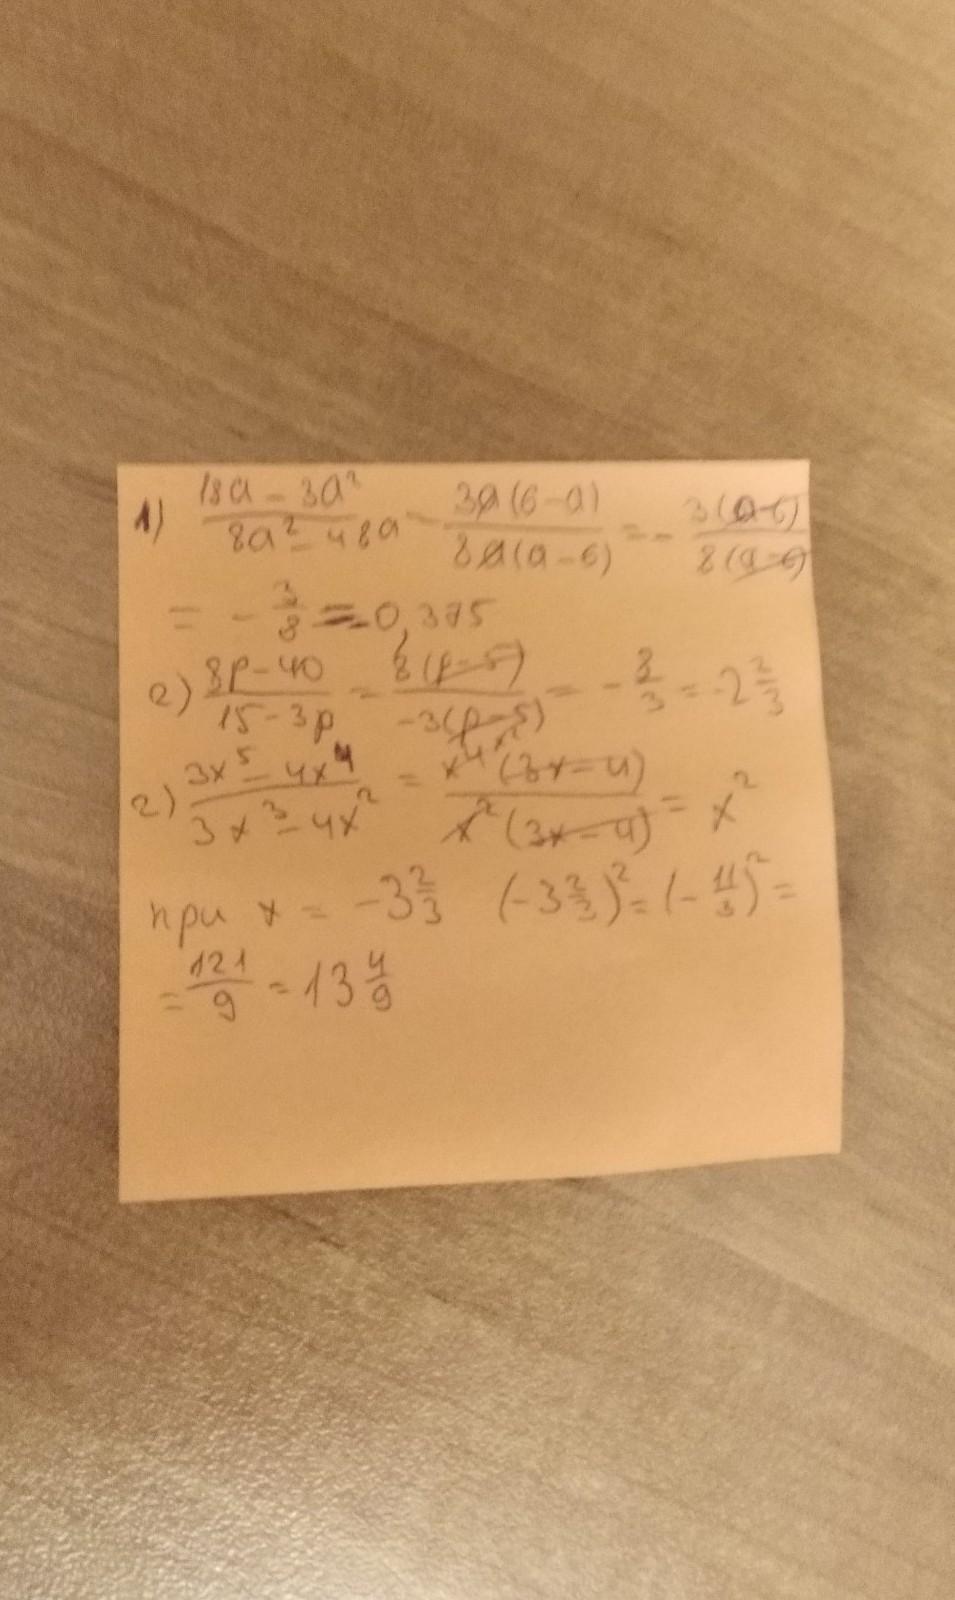 1) (18a - 3a²)/(8a² - 48a) - (3a(6-a))/(8a(a-6)) = - (3(a-6))/(8(a-6))
= - 3/8 = -0,375
2) (8p-40)/(15-3p) = (8(p-5))/(-3(p-5)) = - 8/3 = -2 2/3
2) (3x⁵ - 4x⁴)/(3x³ - 4x²) = (x⁴ x² (3x-4))/(x² (3x-4)) = x²
при x = -3 2/3 (-3 2/3)² = (- 11/3)² =
= 121/9 = 13 4/9